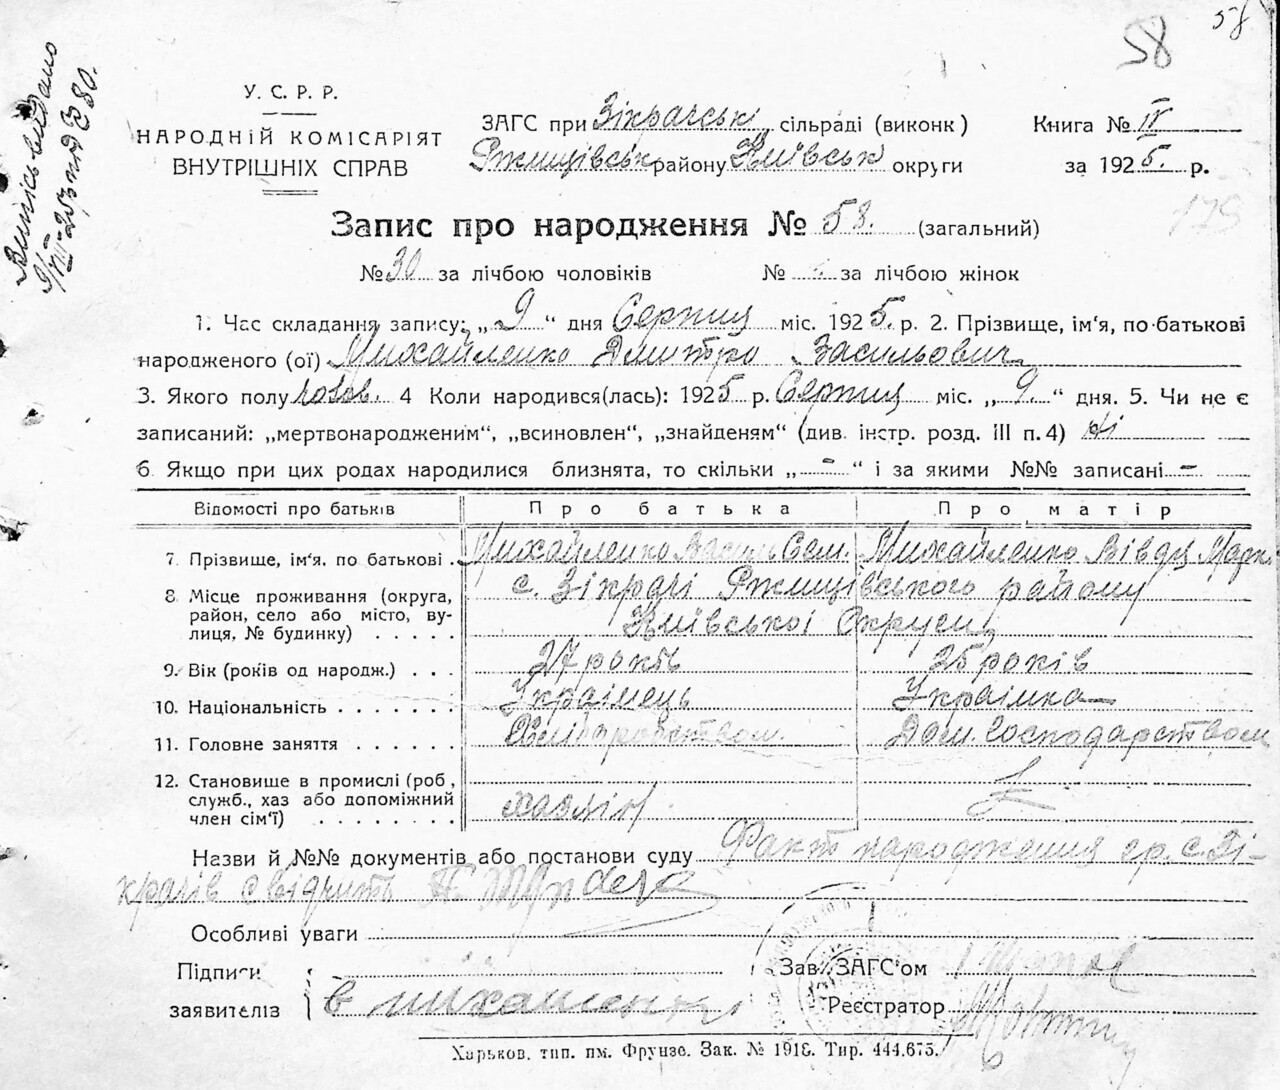 58
58
Випись видано
У. С. Р. Р.
НАРОДНІЙ КОМІСАРІЯТ
ВНУТРІШНІХ СПРАВ
ЗАГС при Зікрачськ сільраді (виконк)
Ржищівськ району Київськ округи
Книга № IV
за 1925. р.
179
Запис про народження № 58. (загальний)
№ 30 за лічбою чоловіків № за лічбою жінок
1. Час складання запису: „9“ дня Серпня міс. 1925. р. 2. Прізвище, ім'я, по-батькові
народженого (ої) Михайленко Дмитро Васильович
3. Якого полу чолов. 4 Коли народився(лась): 1925 р. Серпня міс. „9.“ дня. 5. Чи не є
записаний: „мертвонародженим“, „всиновлен“, „знайденям“ (див. інстр. розд. III п. 4) ні
6. Якщо при цих родах народилися близнята, то скільки „-“ і за якими №№ записані -
Відомості про батьків Про батька Про матір
7. Прізвище, ім'я, по батькові . Михайленко Василь Сем. Михайленко Вівдя Марк.
8. Місце проживання (округа, с. Зікрачі Ржищівського району
район, село або місто, ву-
лиця, № будинку) . . . . . Київської Округи
9. Вік (років од народж.) . . . 27 років 25 років
10. Національність . . . . . . . Українець Українка
11. Головне заняття . . . . . . Хліборобством. Дом. Господарством
12. Становище в промислі (роб,
служб., хаз або допоміжний хазяїн
член сім'ї) . . . . . . . .
Назви й №№ документів або постанови суду Факт народження гр. с. Зі-
крачів свідчить
Особливі уваги
Підписи
заявителів В Михайленко
Зав. ЗАГС'ом
Реєстратор
Харьков. тип. им. Фрунзе. Зак. № 1918. Тир. 444.675.